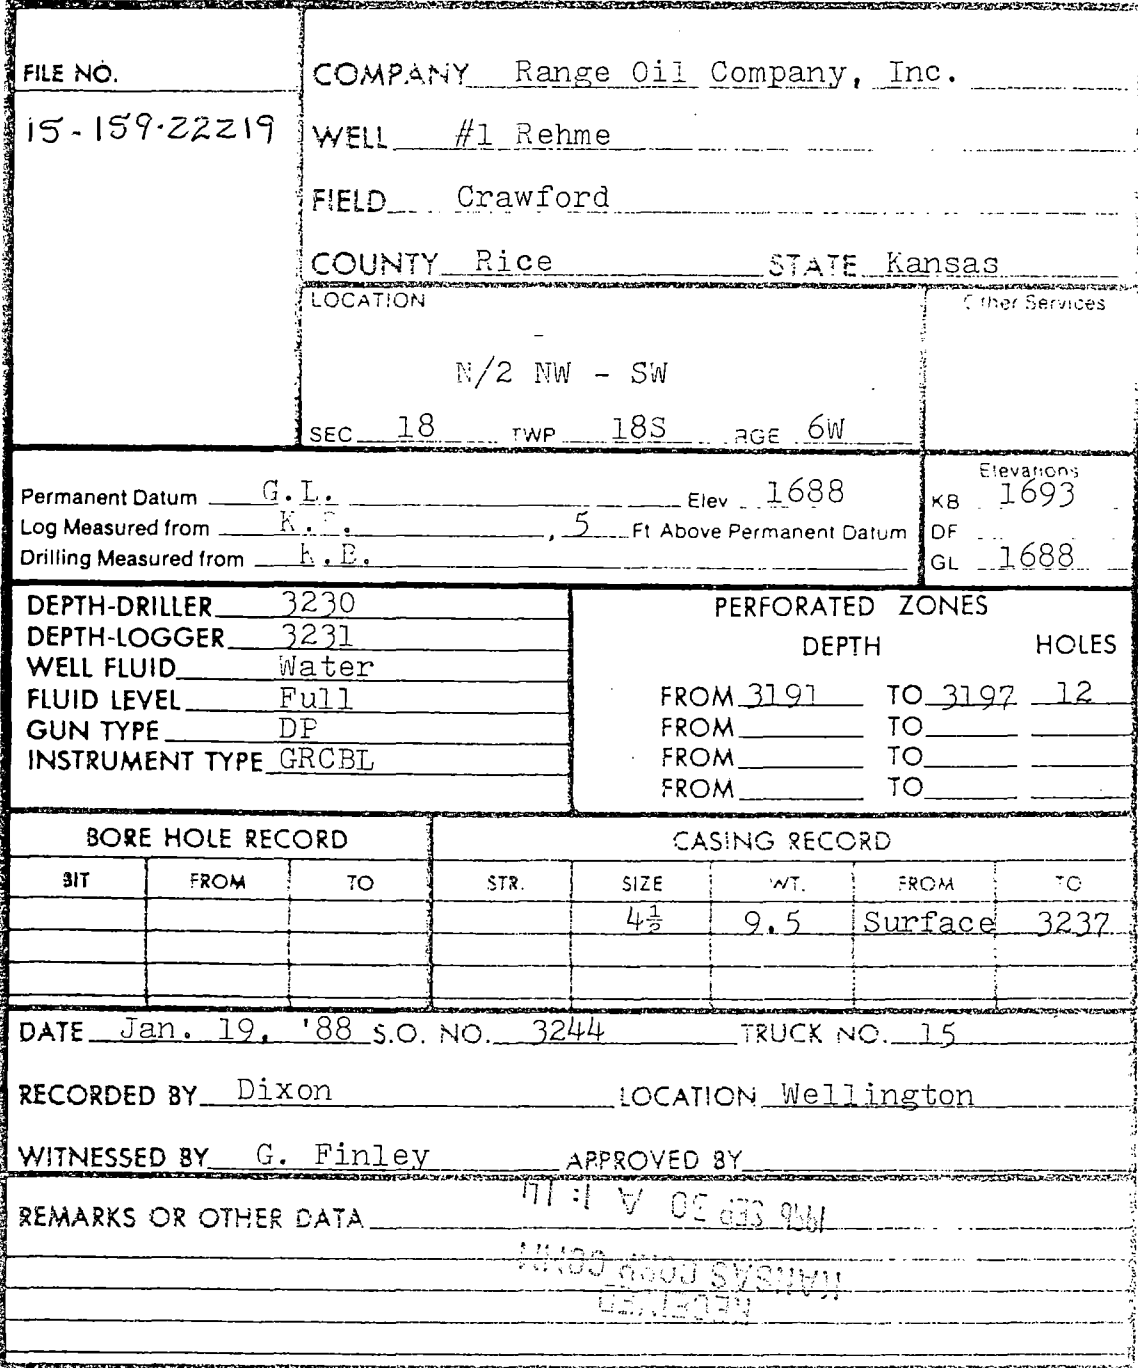 FILE NO.
15-159-22219
COMPANY Range Oil Company, Inc.
WELL #1 Rehme
FIELD Crawford
COUNTY Rice STATE Kansas
LOCATION
N/2 NW - SW
SEC 18 TWP 18S RGE 6W
Other Services
Permanent Datum G.L. Elev 1688
Log Measured from K.B. , 5 Ft Above Permanent Datum
Drilling Measured from K.B.
Elevations
KB 1693
DF
GL 1688
DEPTH-DRILLER 3230
DEPTH-LOGGER 3231
WELL FLUID Water
FLUID LEVEL Full
GUN TYPE DP
INSTRUMENT TYPE GRCBL
PERFORATED ZONES
DEPTH HOLES
FROM 3191 TO 3197 12
FROM TO
FROM TO
FROM TO
BORE HOLE RECORD CASING RECORD
BIT FROM TO STR. SIZE WT. FROM TO
4½ 9.5 Surface 3237
DATE Jan. 19, '88 S.O. NO. 3244 TRUCK NO. 15
RECORDED BY Dixon LOCATION Wellington
WITNESSED BY G. Finley APPROVED BY
REMARKS OR OTHER DATA
RECEIVED
KANSAS CORP COMM
SEP 30 A